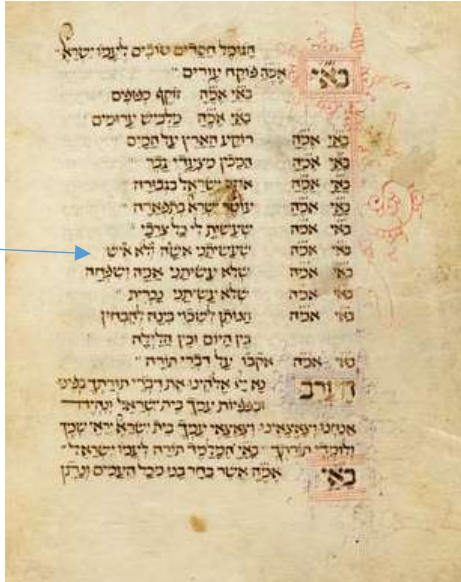 הגומל חסדים טובים לעמו ישרא
באי אמה פוקח עורים
באי אמה זוקף כפופים
באי אמה מלביש ערומים
באי אמה רוקע הארץ על המים
באי אמה המכין מיצעדי גבר
באי אמה אוזר ישראל בגבורה
באי אמה עוטר ישרא בתפארה
באי אמה שעשית לי כל צרכי
באי אמה שעשיתני אשה ולא איש
באי אמה שלא עשיתני אמה ושפחה
באי אמה שלא עשיתני נכרית
באי אמה הנותן לשכוי בינה להבחין
בין היום ובין הלילה
באי אמה אקבו על דברי תורה
הערב נא יי אלהינו את דברי תורתך בפינו
ובפפיות עמך בית ישראל ונהיה
אנחנו וצאצאינו וצאצאי עמך בית ישרא יראי שמך
ולומדי תורתך באי המלמד תורה לעמו ישראל
באי אמה אשר בחר בנו מכל העמים ונתן